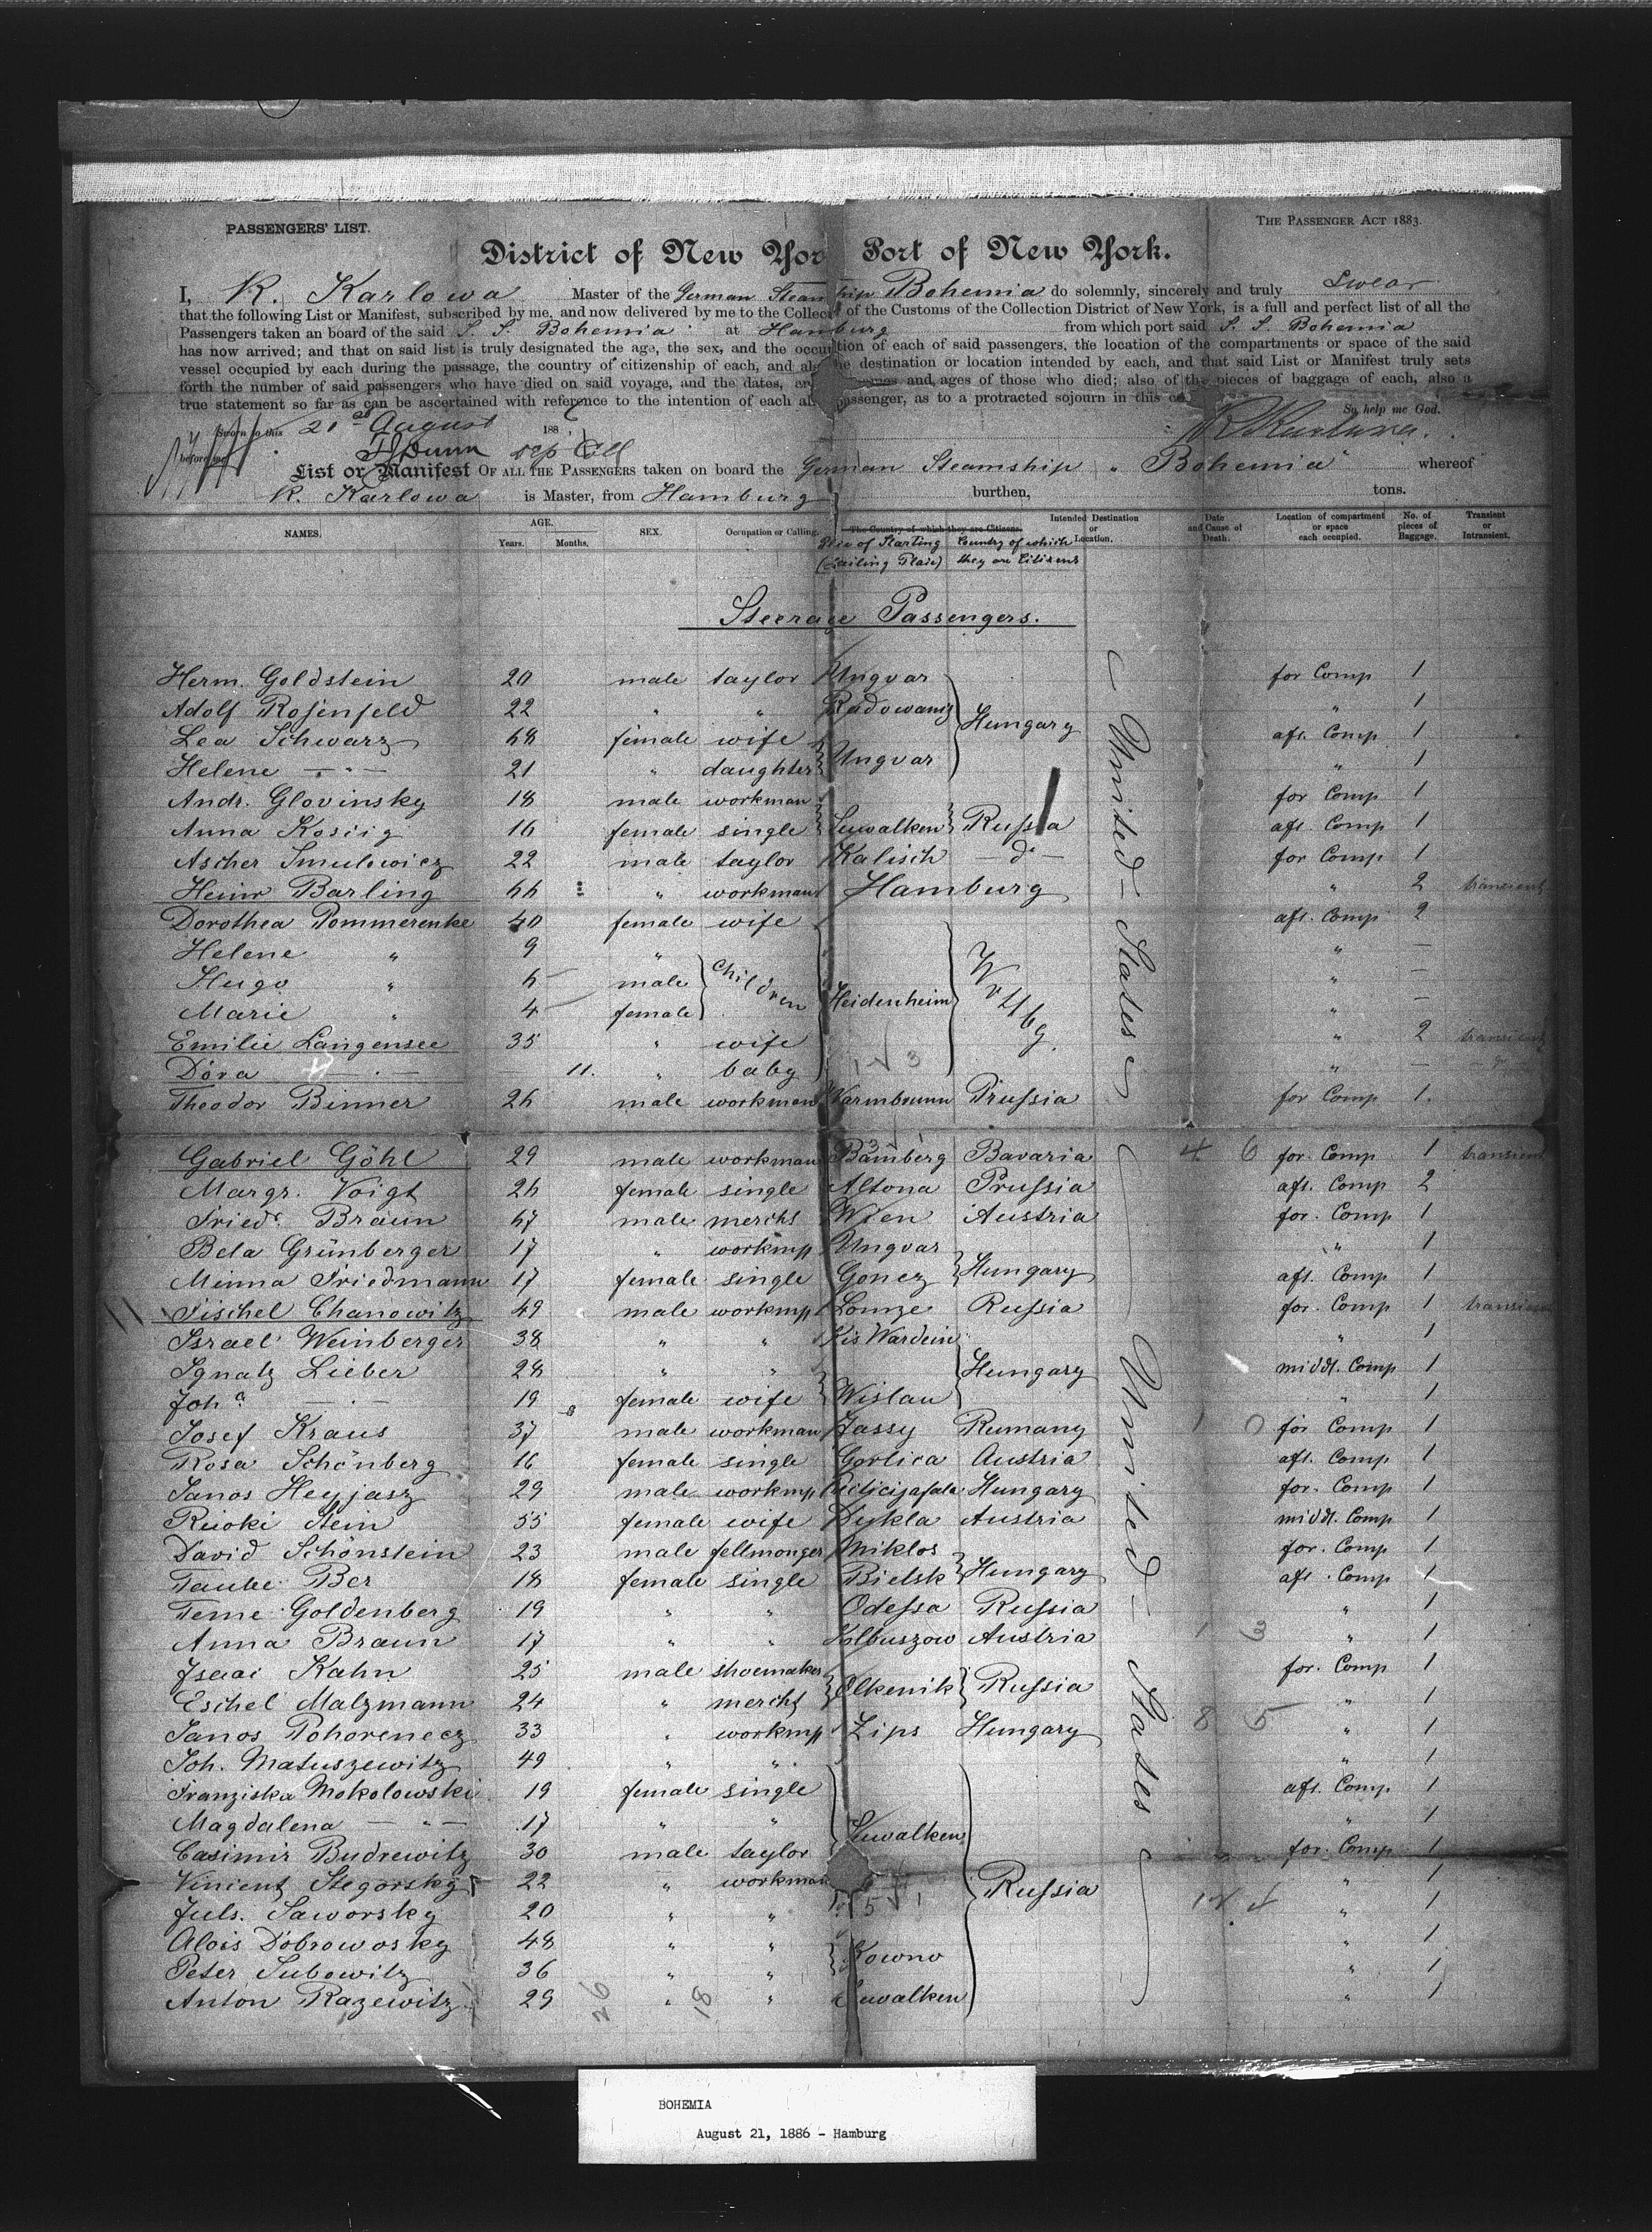 PASSENGERS' LIST.
THE PASSENGER ACT 1883.
District of New Yor Port of New York.
I, R. Karlowa Master of the German Steam ship Bohemia do solemnly, sincerely and truly swear
that the following List or Manifest, subscribed by me, and now delivered by me to the Collect of the Customs of the Collection District of New York, is a full and perfect list of all the
Passengers taken an board of the said S. S. Bohemia at Hamburg from which port said S. S. Bohemia
has now arrived; and that on said list is truly designated the age, the sex, and the occupation of each of said passengers, the location of the compartments or space of the said
vessel occupied by each during the passage, the country of citizenship of each, and also the destination or location intended by each, and that said List or Manifest truly sets
forth the number of said passengers who have died on said voyage, and the dates, and ages of those who died; also of the pieces of baggage of each, also a
true statement so far as can be ascertained with reference to the intention of each passenger, as to a protracted sojourn in this
So help me God.
Sworn to this 21st August 188
before me
List or Manifest OF ALL THE PASSENGERS taken on board the German Steamship "Bohemia" whereof
R. Karlowa is Master, from Hamburg burthen, tons.
NAMES. AGE. Years. Months. SEX. Occupation or Calling. The Country of which they are Citizens. Intended Destination or Location. Date and Cause of Death. Location of compartment or space each occupied. No. of pieces of Baggage. Transient or Intransient.
Place of Starting Country of which
they are Citizens
Steerage Passengers.
Herm. Goldstein 20 male taylor Ungvar for Comp 1
Adolf Rosenfeld 22 " " Radowanz Hungary " 1
Lea Schwarz 48 female wife aft. Comp 1
Helene — " — 21 " daughter Ungvar " 1
Andr. Glovinsky 18 male workman for Comp 1
Anna Kosiig 16 female single Suwalken Russia aft. Comp 1
Ascher Smulowicz 22 male taylor Kalisch — do — for Comp 1
Heinr Barling 44 " workman Hamburg " 2 transient
Dorothea Pommerenke 40 female wife aft. Comp 2
Helene " 9 " " —
Hugo " 5 male children " —
Marie " 4 female Heidenheim Wrttbg. " —
Emilie Langensee 35 " wife " 2 transient
Dora — " — 11. " baby " —
Theodor Binner 26 male workman Warmbrunn Prussia for Comp 1.
United States
Gabriel Göhl 29 male workman Bamberg Bavaria 4 6 for. Comp 1 transient
Margr. Voigt 26 female single Altona Prussia aft. Comp 2
Friedr. Braun 47 male mercht Wien Austria for. Comp 1
Bela Grünberger 17 " workmn Ungvar " 1
Minna Friedmann 17 female single Gonez Hungary aft. Comp 1
Fischel Chanowitz 49 male workmn Lomze Russia for. Comp 1 transient
Israel Weinberger 38 " " Kis Wardein " 1
Ignatz Lieber 28 " " Hungary middl. Comp 1
Joha — " — 19 female wife Wislau " 1
Josef Kraus 37 male workman Jassy Rumany 1 0 for Comp 1
Rosa Schönberg 16 female single Gorlica Austria aft. Comp 1
Janos Heyjasz 29 male workmn Hungary for. Comp 1
Ruoki Stein 55 female wife Dykla Austria middl. Comp 1
David Schönstein 23 male fellmonger Miklos for. Comp 1
Taube Ber 18 female single Bielsk Hungary aft. Comp 1
Teme Goldenberg 19 " " Odessa Russia " 1
Anna Braun 17 " " Kolbuszow Austria 1 3 " 1
Isaai Kahn 25 male shoemaker for. Comp 1
Eschel Malzmann 24 " mercht Olkenik Russia " 1
Janos Pohorenecz 33 " workmn Zips Hungary 8 5 " 1
Joh. Matuszewitz 49 " " " 1
Franziska Mokolowski 19 female single aft. Comp 1
Magdalena — " — 17 " " Suwalken " 1
Casimir Budrewitz 30 male taylor for. Comp 1
Vincent Stegorsky 22 " workman Russia " 1
Juls. Saworsky 20 " " " 1
Alois Dobrowosky 48 " " " 1
Peter Subowitz 36 " " Kowno " 1
Anton Razewitz 29 " " Suwalken " 1
United States
26 18
BOHEMIA
August 21, 1886 - Hamburg